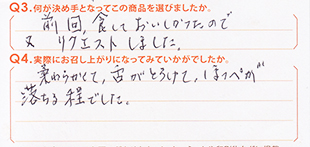 Q3.何が決め手となってこの商品を選びましたか。
前回,食しておいしかったので
又 リクエストしました。
Q4.実際にお召し上がりになってみていかがでしたか。
柔わらかくて,舌がとろけて,ほっぺが
落ちる程でした。